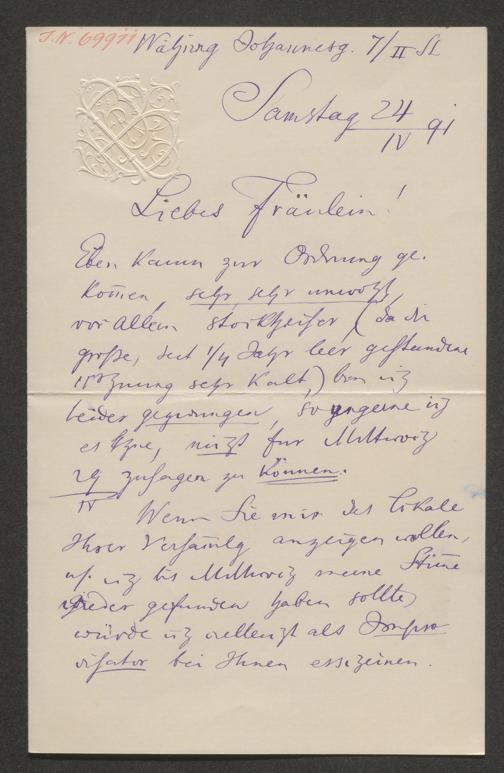 J.N. 69911 Währing Johannesg. 7/II St
Samstag 24/IV 91
Liebes Fräulein!
Eben kaum zur Ordnung ge-
kom̄en, sehr, sehr unwohl,
vor Allem stockheiser, (da die
große, seit 1/4 Jahr leer gestandene
Wohnung sehr kalt,) bin ich
leider gezwungen, so ungerne ich
es thue, nicht für Mittwoch
29/IV zusagen zu können.
Wenn Sie mir das Lokale
Ihrer Versam̄lg anzeigen wollen,
u. ich bis Mittwoch meine Stim̄e
wieder gefunden haben sollte,
würde ich vielleicht als Impro-
visator bei Ihnen erscheinen.